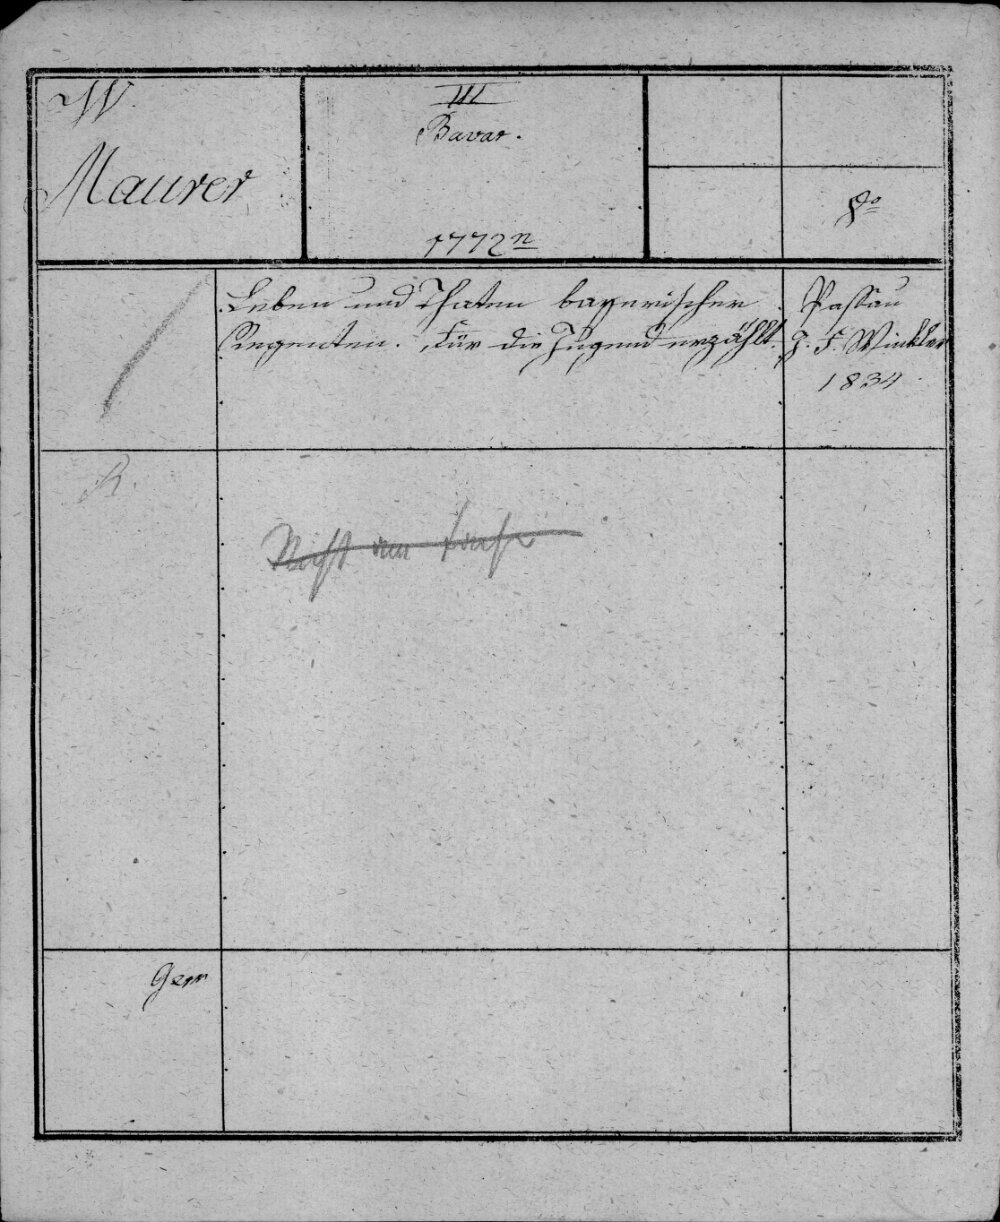 W.
Maurer
III
Bavar.
1772 n
8o
Leben und Thaten bayerischer
Regenten. Für die Jugend erzählt.
Passau
J. F. Winkler
1834.
R.
Nicht am
Germ